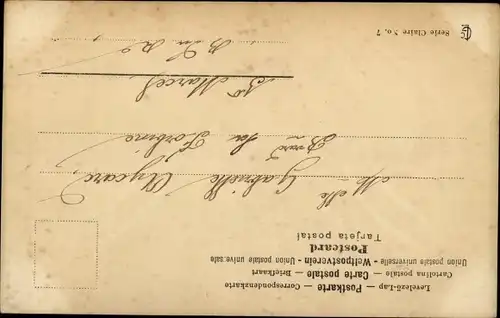 Levelező-Lap — Postkarte — Correspondenzkarte
Cartolina postale — Carte postale — Briefkaart
Union postale universelle - Weltpostverein - Union postale universale
Postcard
Tarjeta postal
Melle Gabrielle
Bard La Forbine
St Marcel
Serie Claire No. 7